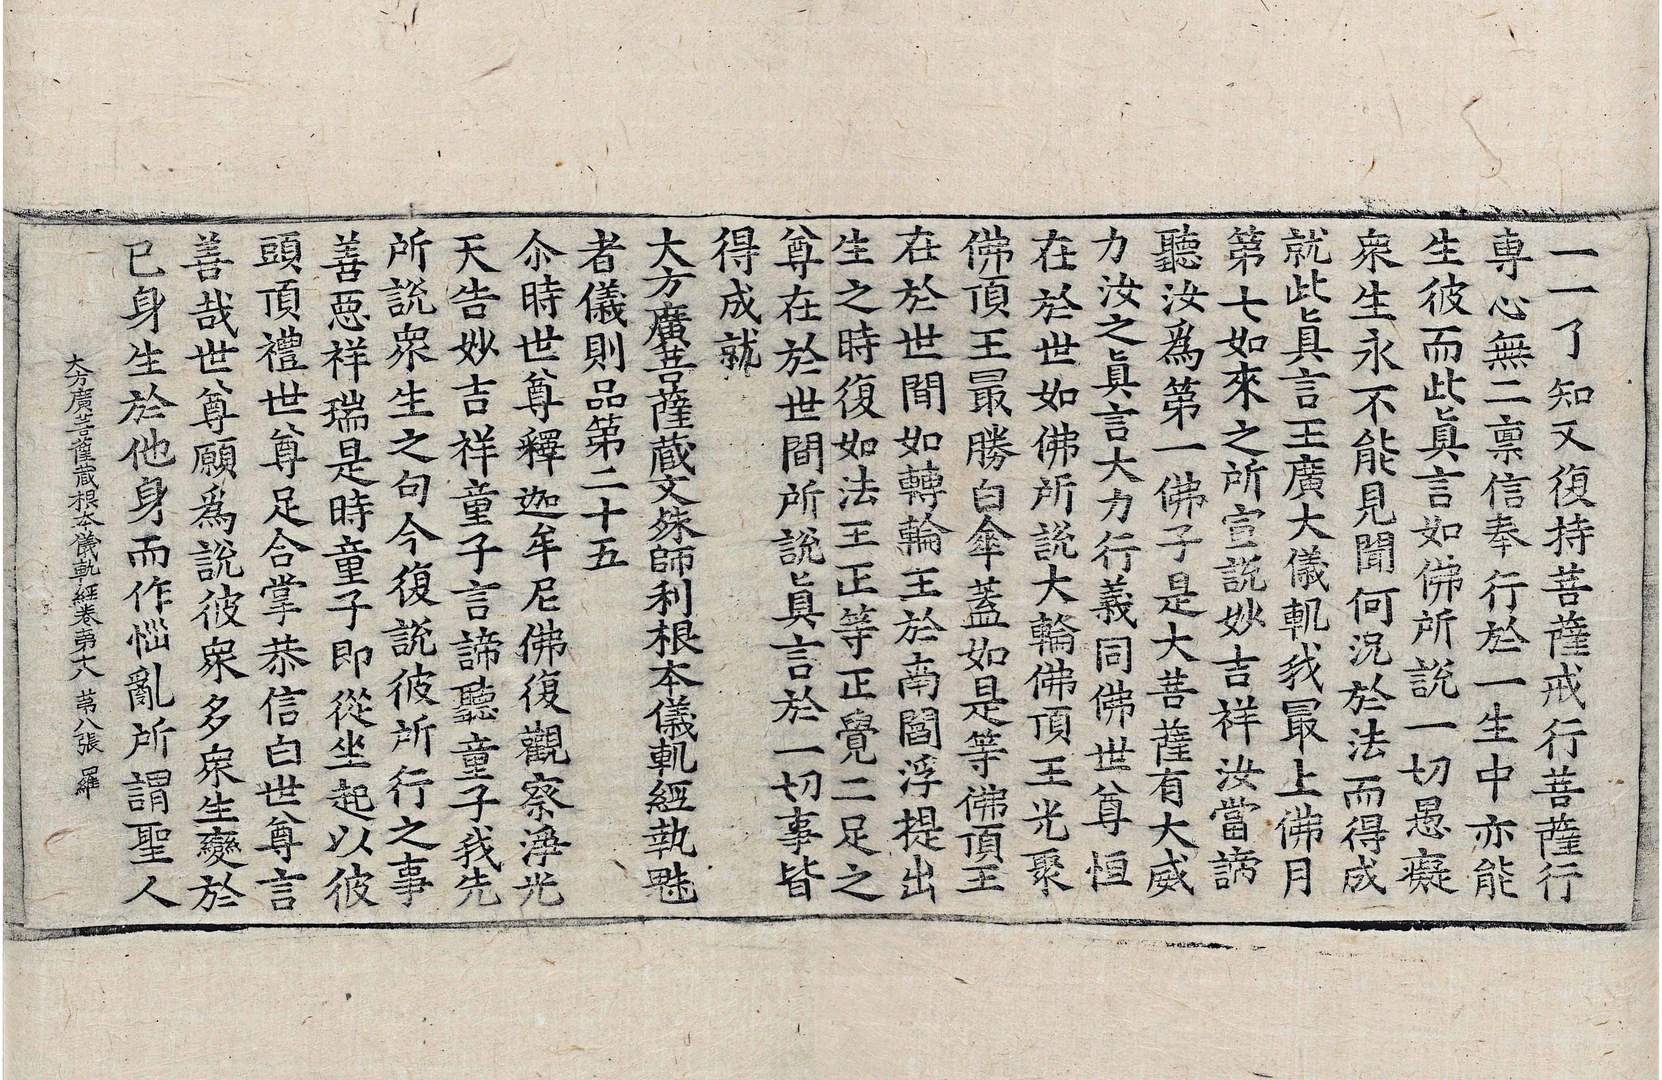 一一了知又復持菩薩戒行菩薩行
專心無二禀信奉行於一生中亦能
生彼而此眞言如佛所說一切愚癡
衆生永不能見聞何況於法而得成
就此眞言王廣大儀軌我最上佛月
第七如來之所宣說妙吉祥汝當諦
聽汝爲第一佛子是大菩薩有大威
力汝之眞言大力行義同佛世尊恒
在於世如佛所說大輪佛頂王光聚
佛頂王最勝白傘蓋如是等佛頂王
在於世間如轉輪王於南閻浮提出
生之時復如法王正等正覺二足之
尊在於世間所說眞言於一切事皆
得成就
大方廣菩薩藏文殊師利根本儀軌經執魅
者儀則品第二十五
尒時世尊釋迦牟尼佛復觀察淨光
天告妙吉祥童子言諦聽童子我先
所說衆生之句今復說彼所行之事
善惡祥瑞是時童子即從坐起以彼
頭頂禮世尊足合掌恭信白世尊言
善哉世尊願爲說彼衆多衆生變於
已身生於他身而作惱亂所謂聖人
大方廣菩薩藏根本儀軌經卷第十八 第八張 羅